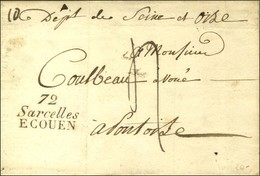 Dépt de Seine et Oise
a Monsieur
Coulbeau avoué
72
Sarcelles
ECOUEN
a Pontoise